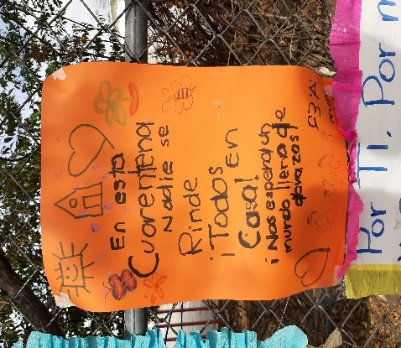 En esta
Cuarentena
Nadie se
Rinde
¡Todos
En
Casa!
¡Nos espera un
mundo lleno de
abrazos!
Por Ti, Por m